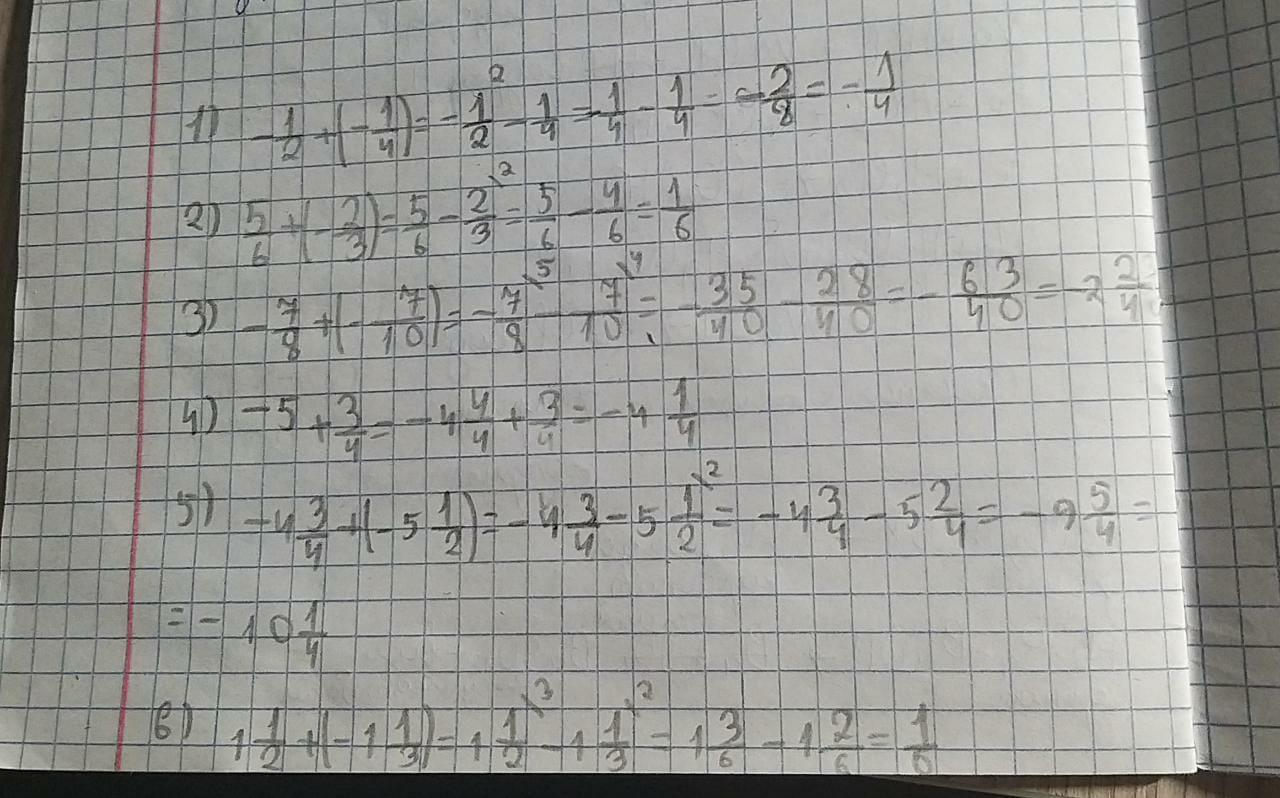 1) -1/2 + (-1/4) = -1/2^2 - 1/4 = -1/4 - 1/4 = -2/8 = -1/4
2) 5/6 + (-2/3) = 5/6 - 2/3^2 = 5/6 - 4/6 = 1/6
3) -7/8 + (-7/10) = -7/8^5 - 7/10^4 = -35/40 - 28/40 = -63/40 =
4) -5 + 3/4 = -4 4/4 + 3/4 = -4 1/4
5) -4 3/4 + (-5 1/2) = -4 3/4 - 5 1/2^2 = -4 3/4 - 5 2/4 = -9 5/4 =
= -10 1/4
6) 1 1/2 + (-1 1/3) = 1 1/2^3 - 1 1/3^2 = 1 3/6 - 1 2/6 = 1/6